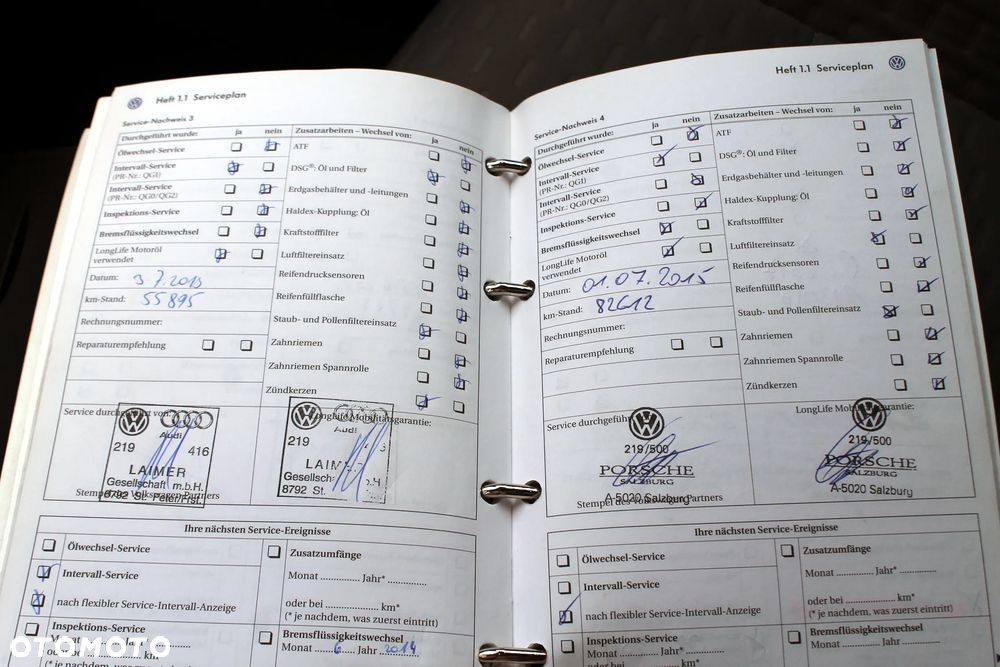 Heft 1.1 Serviceplan
Service-Nachweis 3
Durchgeführt wurde: ja nein
Ölwechsel-Service
Intervall-Service
(PR-Nr.: QG1)
Intervall-Service
(PR-Nr.: QG0/QG2)
Inspektions-Service
Bremsflüssigkeitswechsel
LongLife Motoröl
verwendet
Datum: 3.7.2013
km-Stand: 55895
Rechnungsnummer:
Reparaturempfehlung
Zusatzarbeiten – Wechsel von: ja nein
ATF
DSG®: Öl und Filter
Erdgasbehälter und -leitungen
Haldex-Kupplung: Öl
Kraftstofffilter
Luftfiltereinsatz
Reifendrucksensoren
Reifenfüllflasche
Staub- und Pollenfiltereinsatz
Zahnriemen
Zahnriemen Spannrolle
Zündkerzen
Service durchgeführt von:
Audi
219 416
LAIMER
Gesellschaft m.b.H.
8792 St. Peter/Frst.
Stempel des Volkswagen Partners
LongLife Mobilitätsgarantie:
Audi
219
Gesellschaft
8792 St.
Ihre nächsten Service-Ereignisse
Ölwechsel-Service
Intervall-Service
nach flexibler Service-Intervall-Anzeige
Inspektions-Service
Monat Jahr*
km*
(* je nachdem, was zuerst eintritt)
Zusatzumfänge
Monat .............. Jahr* ..............
oder bei ...................... km*
(* je nachdem, was zuerst eintritt)
Bremsflüssigkeitswechsel
Monat 6 Jahr 2014
Heft 1.1 Serviceplan
Service-Nachweis 4
Durchgeführt wurde: ja nein
Ölwechsel-Service
Intervall-Service
(PR-Nr.: QG1)
Intervall-Service
(PR-Nr.: QG0/QG2)
Inspektions-Service
Bremsflüssigkeitswechsel
LongLife Motoröl
verwendet
Datum: 01.07.2015
km-Stand: 82612
Rechnungsnummer:
Reparaturempfehlung
Zusatzarbeiten – Wechsel von: ja nein
ATF
DSG®: Öl und Filter
Erdgasbehälter und -leitungen
Haldex-Kupplung: Öl
Kraftstofffilter
Luftfiltereinsatz
Reifendrucksensoren
Reifenfüllflasche
Staub- und Pollenfiltereinsatz
Zahnriemen
Zahnriemen Spannrolle
Zündkerzen
Service durchgeführt
219/500
PORSCHE
SALZBURG
A-5020 Salzburg
Stempel des Volkswagen Partners
LongLife Mobilitätsgarantie:
219/500
PORSCHE
SALZBURG
A-5020 Salzburg
Ihre nächsten Service-Ereignisse
Ölwechsel-Service
Intervall-Service
nach flexibler Service-Intervall-Anzeige
Inspektions-Service
Monat .............. Jahr* ..............
km*
Zusatzumfänge
Monat .............. Jahr* ..............
oder bei ...................... km*
(* je nachdem, was zuerst eintritt)
Bremsflüssigkeitswechsel
Monat .............. Jahr ..............
OTOMOTO